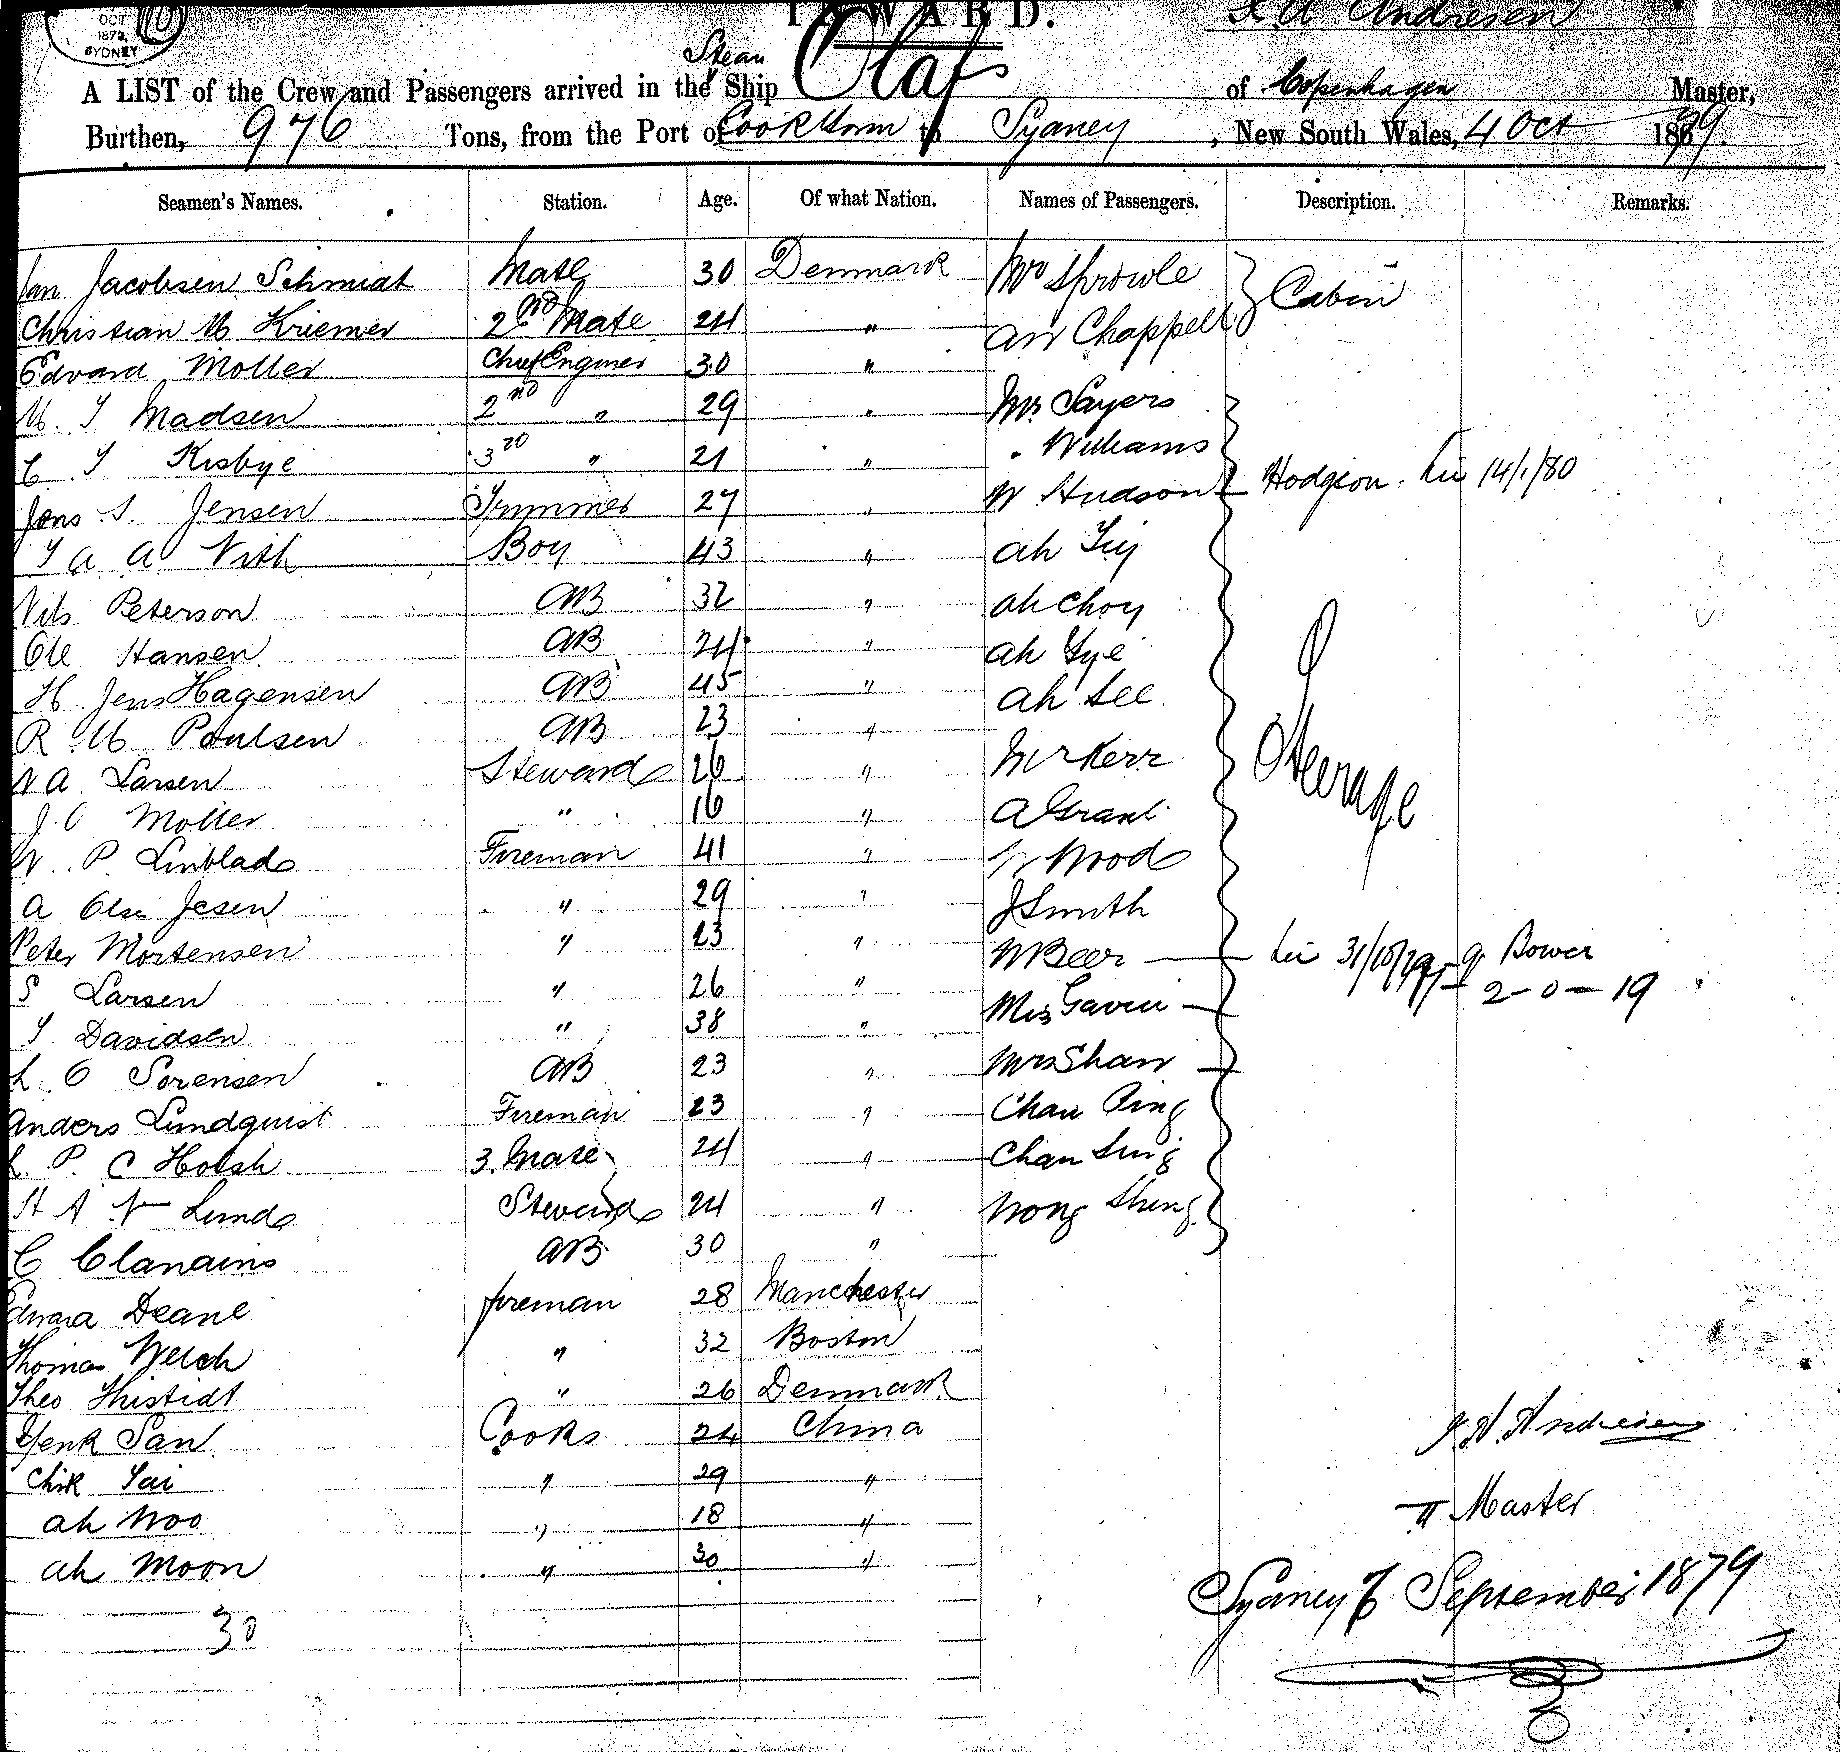 OCT
1879
SYDNEY
INWARD.
Andresen
A LIST of the Crew and Passengers arrived in the Steam Ship Olaf of Copenhagen Master,
Burthen, 976 Tons, from the Port of Cooktown to Sydney, New South Wales, 4 Oct 1879.
Seamen's Names. Station. Age. Of what Nation. Names of Passengers. Description. Remarks.
Jan Jacobsen Schmidt Mate 30 Denmark Mr Sprowle Cabin
Christian M Kriemer 2nd Mate 24 " Chappell
Edvard Moller Chief Engineer 30 "
M. J Madsen 2nd " 29 " Mrs Sayers
C J Kisbye 3rd " 21 " " Williams
Jens S. Jensen Trimmer 27 " W Hudson Hodgson. Lic 14/1/80
J a a Vith Boy 43 " ah
Nils Peterson AB 32 " ah Choy
Ole Hansen AB 24 " ah Gye
H Jens Hagensen AB 45 " ah Lee
R M Poulsen AB 23 " Mr Kerr
N A Larsen Steward 26 " A Grant Steerage
J C Moller " 16 "
N. P. Linblad Fireman 41 " W Wood
A Olsen Jesen " 29 " J Smith
Peter Mortensen " 23 " W Beer Lic 31/10/79 Bower
S Larsen " 26 " Mrs Gavin 2-0-19
J Davidsen " 38 "
L. C Sorensen AB 23 " Mrs Shaw
Anders Lundquist Fireman 23 " Chan Ping
L P. C Holsh 3. Mate 24 " Chan Sing
H A N Lund Steward 24 " Wong Sheng
C Clanains AB 30 "
Edward Deane fireman 28 Manchester
Thomas Welch " 32 Boston
Theo Thustidt " 26 Denmark
San Cooks 24 China
Chik Sai " 29 "
ah Woo " 18 "
ah Moon " 30 "
30
Andresen
Master
Sydney September 1879